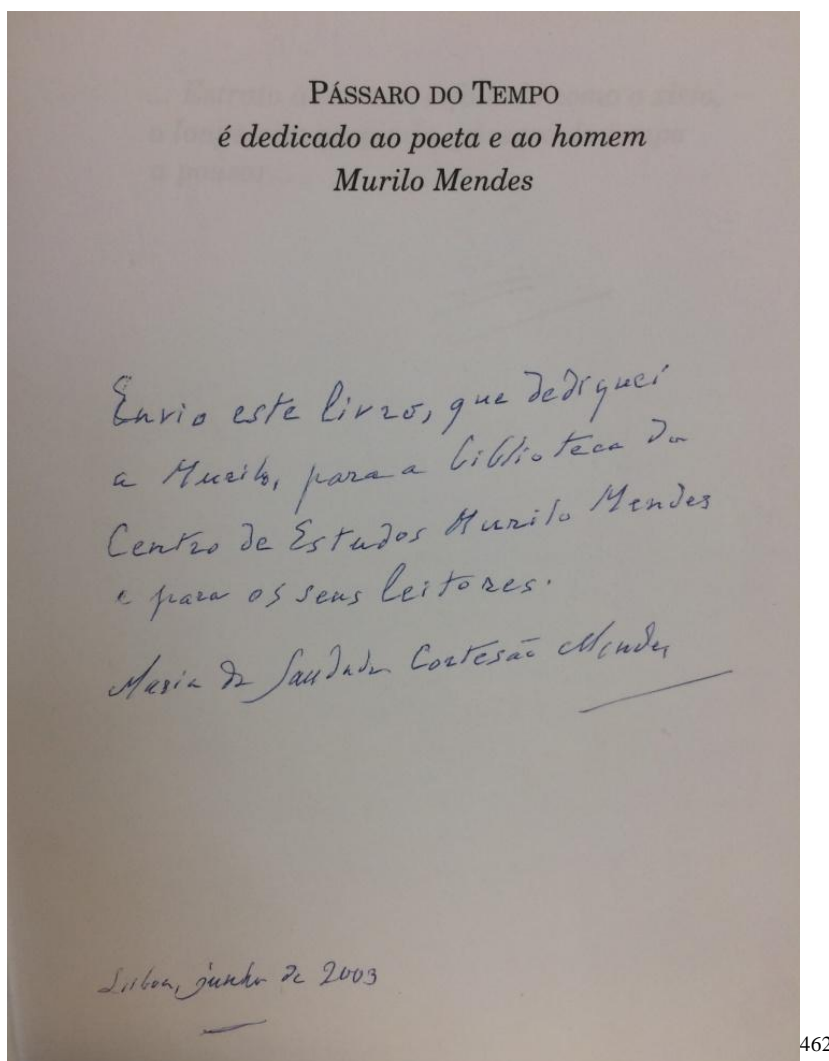 PÁSSARO DO TEMPO
é dedicado ao poeta e ao homem
Murilo Mendes
Envio este livro, que dediquei
a Murilo, para a biblioteca do
Centro de Estudos Murilo Mendes
e para os seus leitores.
Maria da Saudade Cortesão Mendes
Lisboa, junho de 2003
462